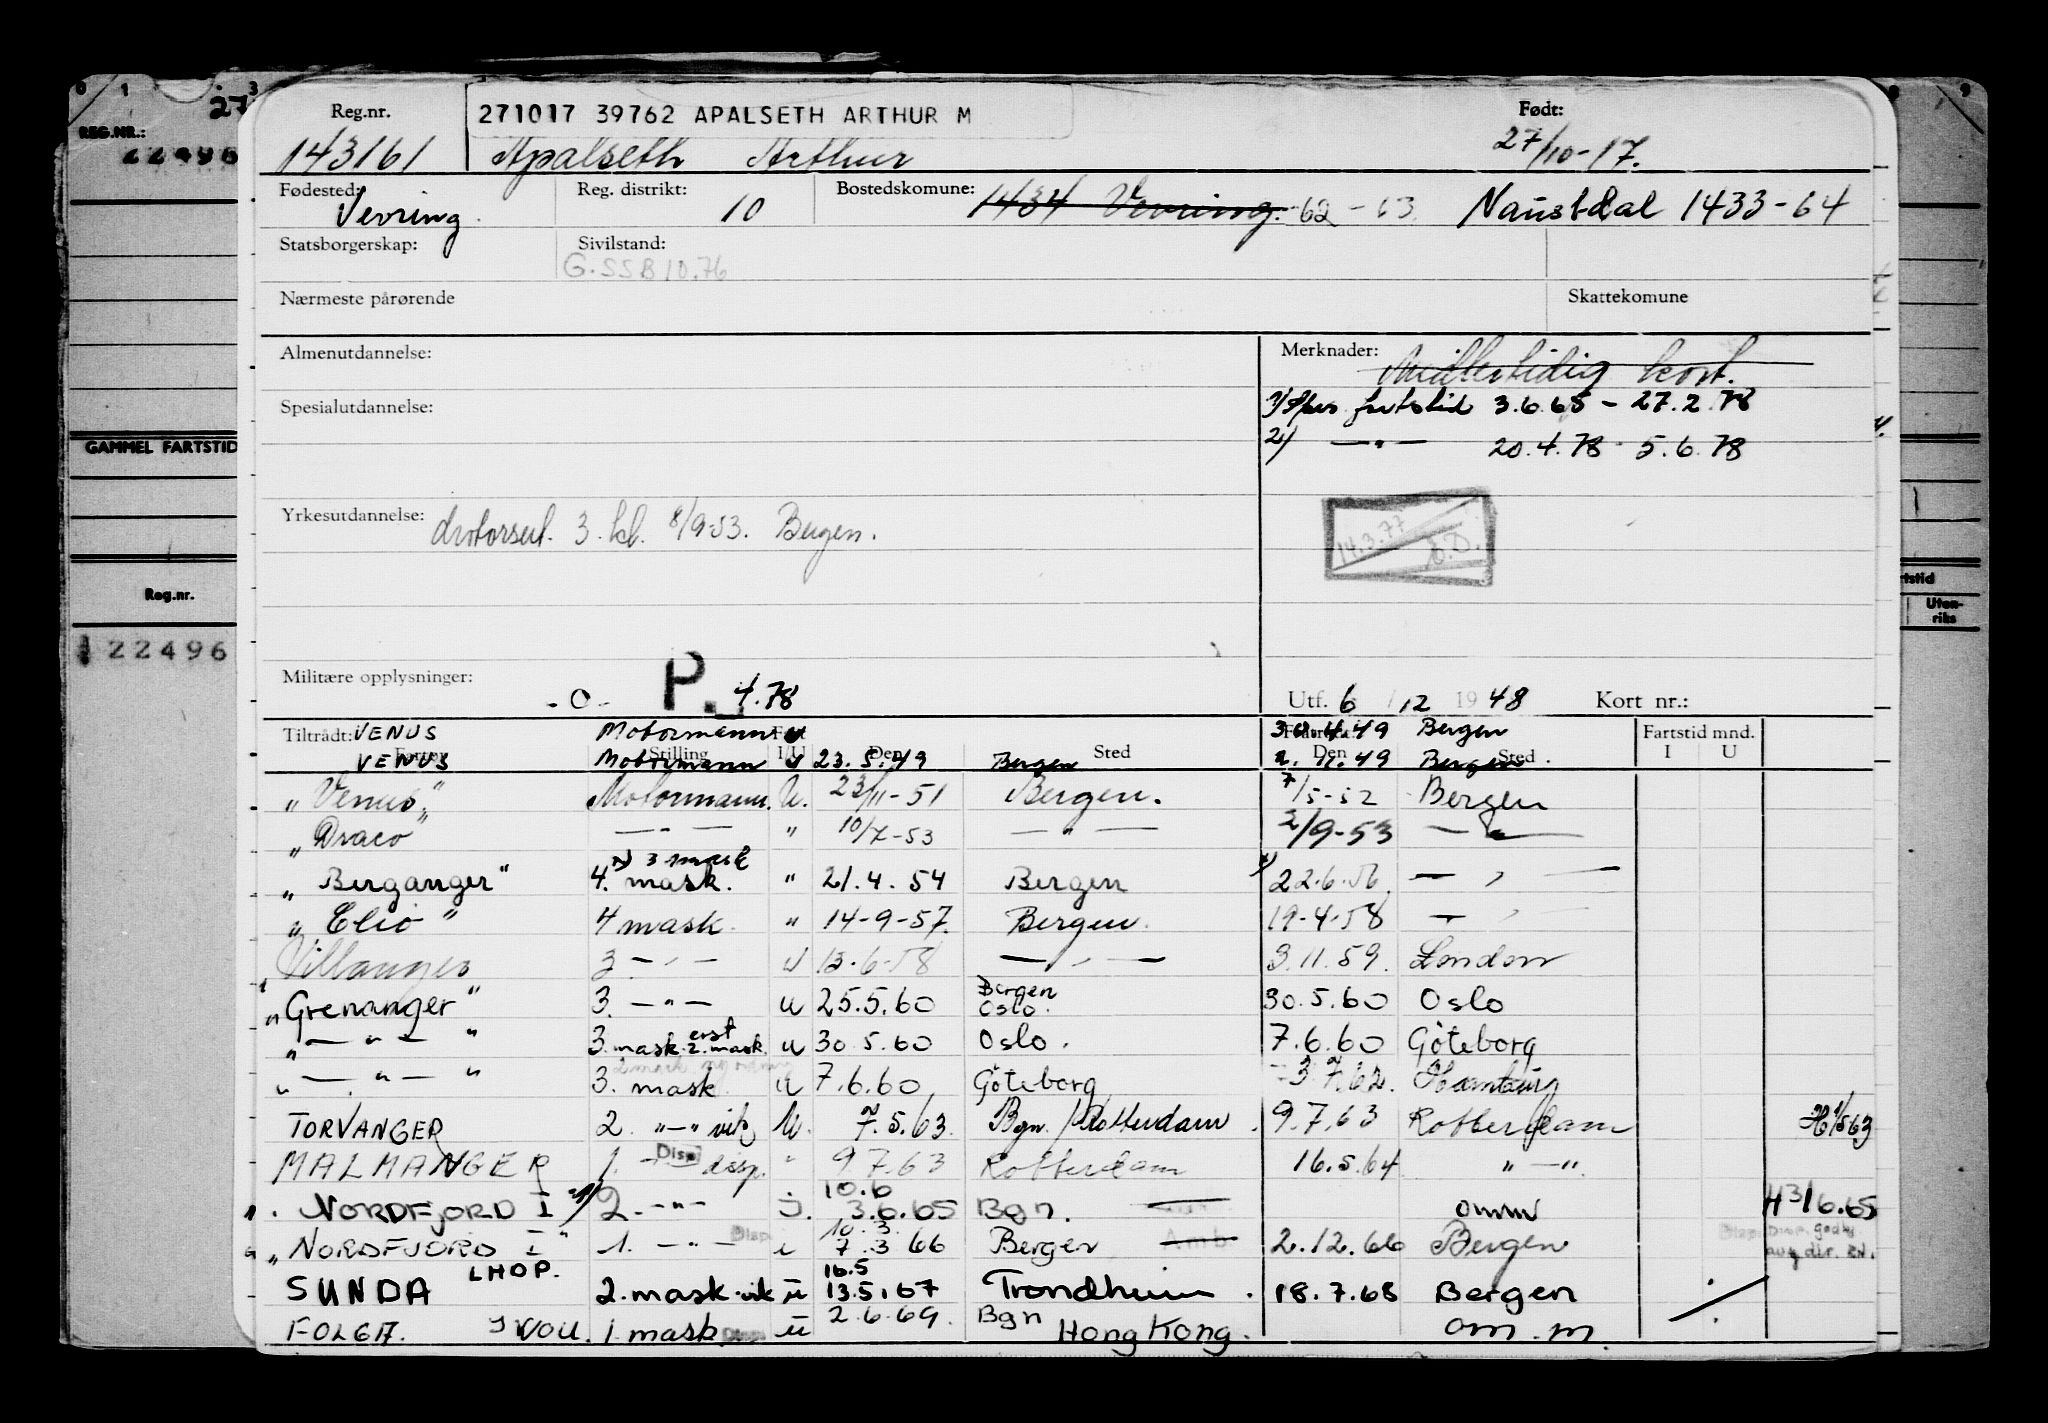 0 1 3 9
27
REG.NR.:
22496
GAMMEL FARTSTID
Reg.nr.
122496
rtstid
Uten-
riks
Reg.nr. 271017 39762 APALSETH ARTHUR M Født:
143161 Apalseth Arthur 27/10-17.
Fødested: Vevring Reg. distrikt: 10 Bostedskomune: 1434 Vevring. 62-63 Naustdal 1433-64
Statsborgerskap: Sivilstand:
G.SSB 10.76
Nærmeste pårørende Skattekomune
Almenutdannelse: Merknader: Midlertidig kort.
Spesialutdannelse: 1) fartstid 3.6.65 - 27.2.78
2) —"— 20.4.78 - 5.6.78
Yrkesutdannelse: Motorsert. 3. kl. 8/9-53. Bergen.
14.3.77
Militære opplysninger: -0- P. 4.78 Utf. 6/12 1948 Kort nr.:
Tiltrådt: VENUS Motormann u 49 Bergen Fartstid mnd.
VENUS Stilling Motormann I/U u Den 23.5.49 Bergen Sted Den 49 Bergen Sted I U
"Venus" Motormann. U. 23/11-51 Bergen. 7/5-52 Bergen
"Draco" —"— " 10/7-53 —"— 2/9-53 —"—
3 mask
"Berganger" 4. mask. " 21.4.54 Bergen 22.6.56 —"—
"Clio" 4 mask. " 14-9-57. Bergen. 19-4-58 —"—
"Villanger 3 —"— U 13.6.58 —"— 3.11.59. London
"Grenanger" 3. —"— u 25.5.60 Bergen Oslo. 30.5.60 Oslo
"—"—" 3. mask. erst 2. mask. u 30.5.60 Oslo. 7.6.60 Göteborg
"—"—" 3. mask u 7.6.60 Göteborg 3.7.62. Hamburg
TORVANGER 2. "—" vik U. 7.5.63. Bgn./Rotterdam. 9.7.63 Rotterdam H 1/5 63
MALMANGER 1. —"— Disp disp. " 9.7.63 Rotterdam 16.5.64 "—".
10.6
NORDFJORD I 2. —"— 3.6.65 Bgn. omm H 3/6.65
10.3
"NORDFJORD I" 1. —"— Disp. u 7.3.66 Bergen Amb 2.12.66 Bergen
LHOP. 16.5
SUNDA 2. mask. vik u 13.5.67 Trondheim. 18.7.68 Bergen
FOLGA. 1 mask. Disp u 2.6.69. Bgn Hong Kong. om.m.